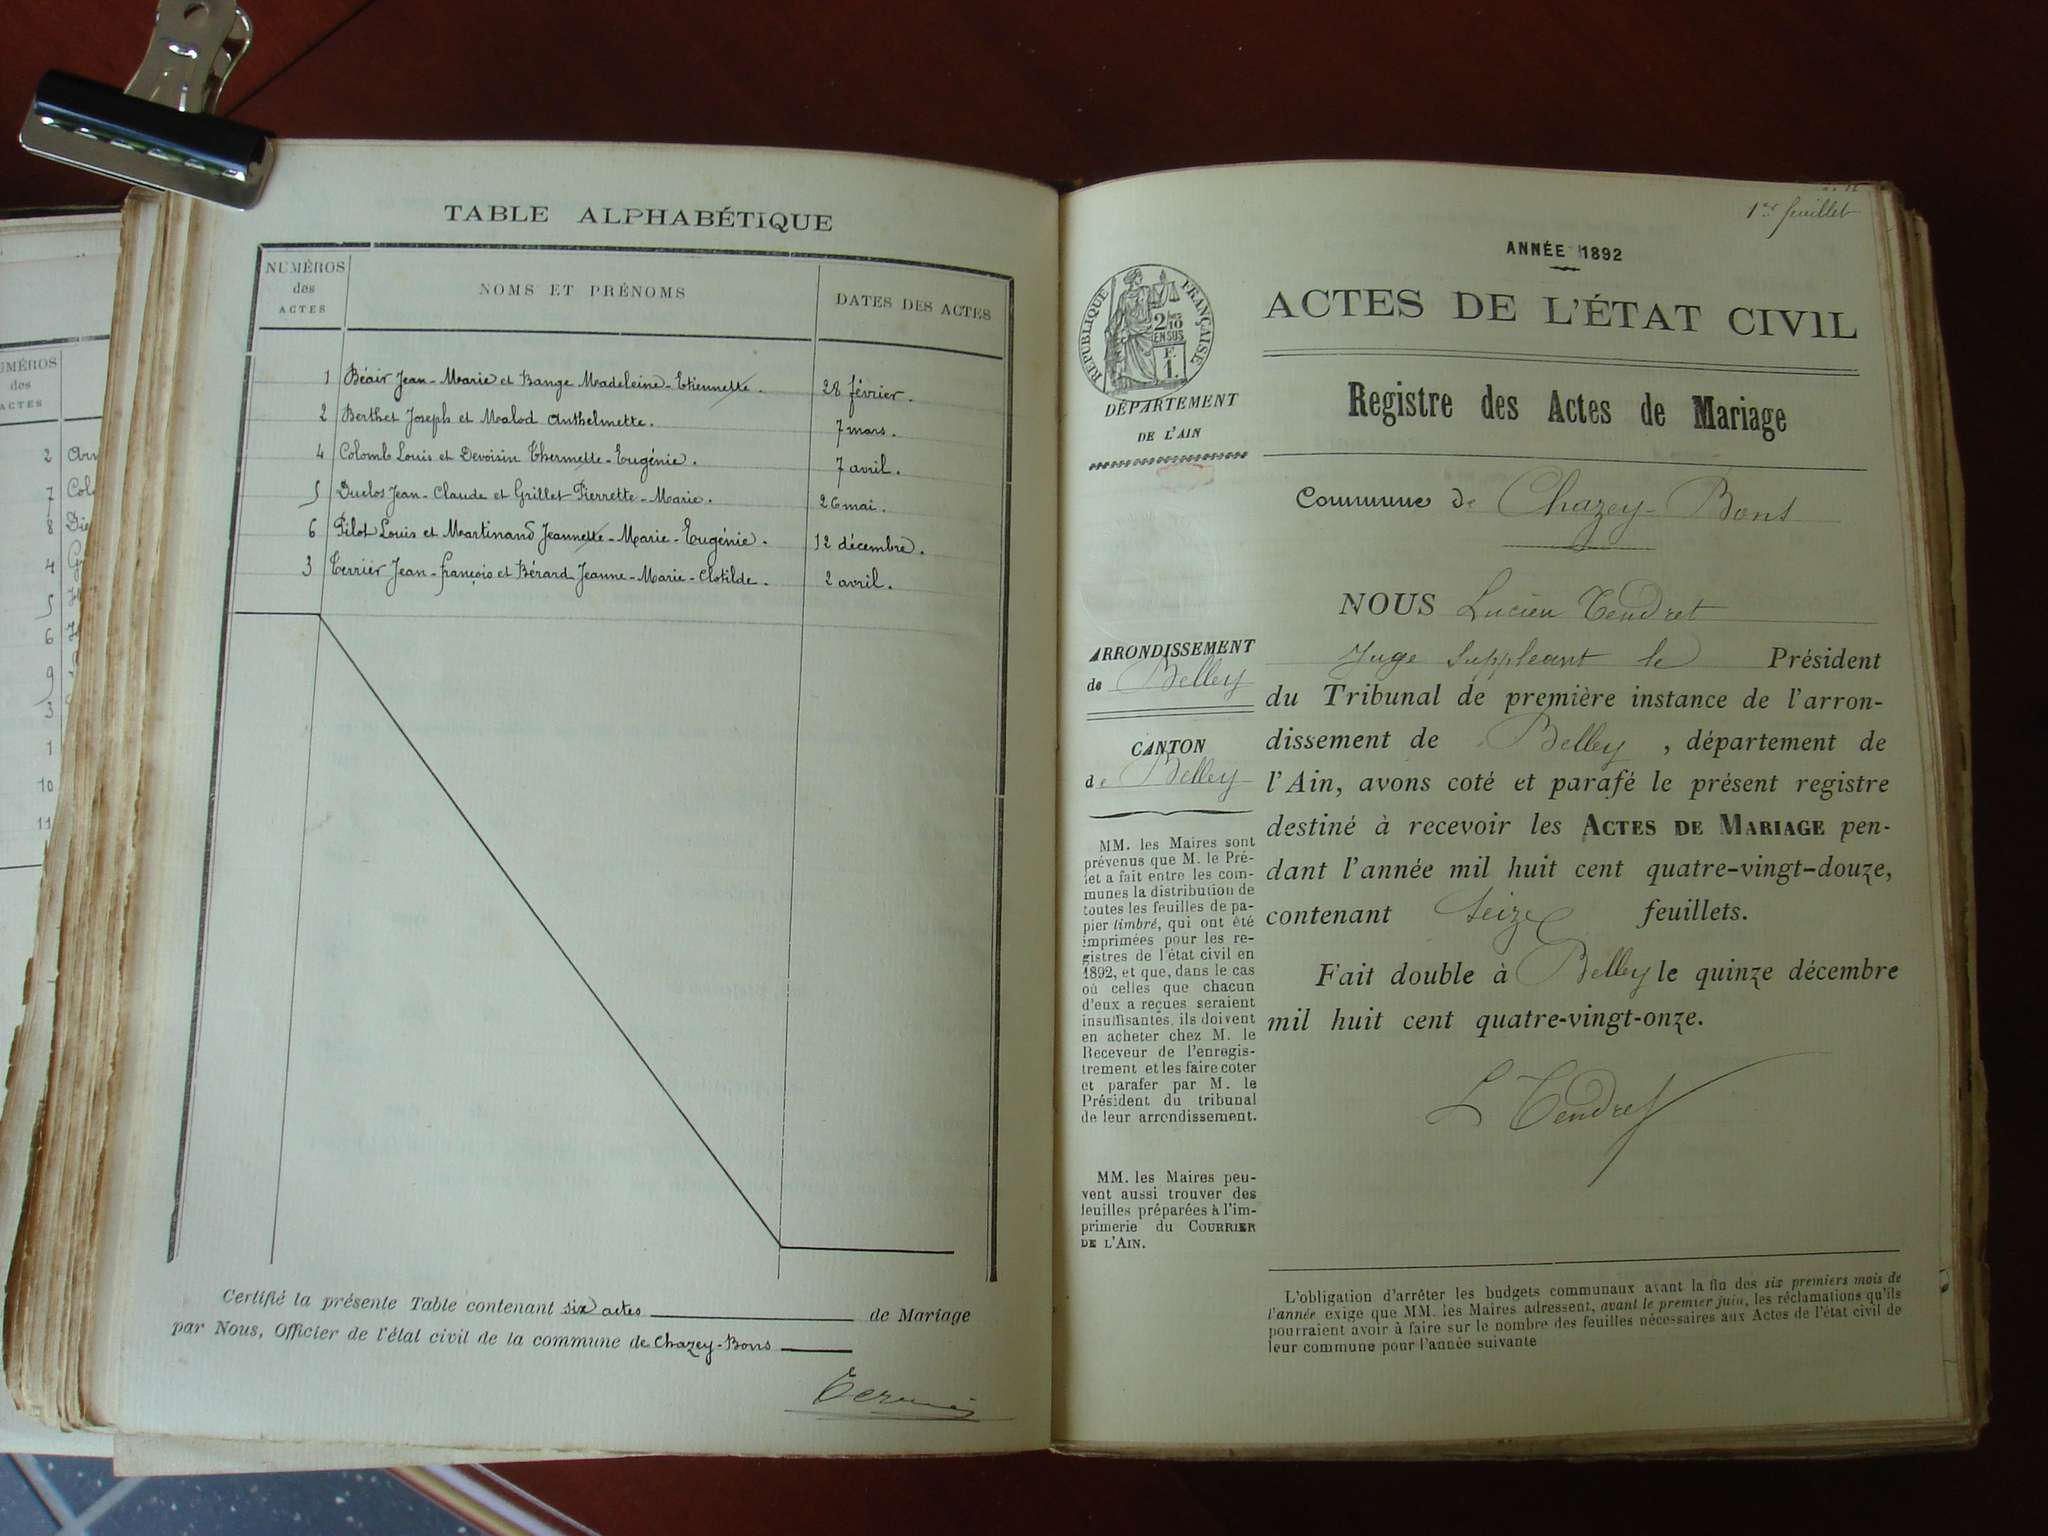 TABLE ALPHABÉTIQUE
NUMÉROS des ACTES
NOMS ET PRÉNOMS
DATES DES ACTES
1 Béair Jean-Marie et Bange Madeleine-Etiennette. 28 février.
2 Berthet Joseph et Malod Anthelmette. 7 mars.
4 Colomb Louis et Devoisin Thermette-Eugénie. 7 avril.
5 Duclos Jean-Claude et Grillet Pierrette-Marie. 26 mai.
6 Pilot Louis et Martinand Jeannette-Marie-Eugénie. 12 décembre.
3 Terrier Jean-françois et Bérard Jeanne-Marie-Clotilde. 2 avril.
Certifié la présente Table contenant six actes de Mariage
par Nous, Officier de l'état civil de la commune de Chazey-Bons
UMÉROS
des
ACTES
2
7
8
4
5
6
9
3
1
10
11
1er feuillet
ANNÉE 1892
ACTES DE L'ÉTAT CIVIL
RÉPUBLIQUE FRANÇAISE
Registre des Actes de Mariage
DÉPARTEMENT
DE L'AIN
Commune de Chazey-Bons
NOUS Lucien Tendret
Juge Suppléant le Président
du Tribunal de première instance de l'arron-
dissement de Belley, département de
l'Ain, avons coté et parafé le présent registre
destiné à recevoir les ACTES DE MARIAGE pen-
dant l'année mil huit cent quatre-vingt-douze,
contenant Seize feuillets.
Fait double à Belley le quinze décembre
mil huit cent quatre-vingt-onze.
L Tendret
ARRONDISSEMENT
de Belley
CANTON
de Belley
MM. les Maires sont
prévenus que M. le Pré-
fet a fait entre les com-
munes la distribution de
toutes les feuilles de pa-
pier timbré, qui ont été
imprimées pour les re-
gistres de l'état civil en
1892, et que, dans le cas
où celles que chacun
d'eux a reçues seraient
insuffisantes, ils doivent
en acheter chez M. le
Receveur de l'enregis-
trement et les faire coter
et parafer par M. le
Président du tribunal
de leur arrondissement.
MM. les Maires peu-
vent aussi trouver des
feuilles préparées à l'im-
primerie du COURRIER
DE L'AIN.
L'obligation d'arrêter les budgets communaux avant la fin des six premiers mois de
l'année exige que MM. les Maires adressent, avant le premier juin, les réclamations qu'ils
pourraient avoir à faire sur le nombre des feuilles nécessaires aux Actes de l'état civil de
leur commune pour l'année suivante